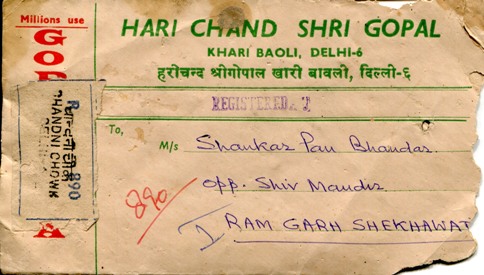 Millions use
HARI CHAND SHRI GOPAL
KHARI BAOLI, DELHI-6
हरीचन्द श्रीगोपाल खारी बावली, दिल्ली-६
REGISTERED
To,
M/s Shankar Pan Bhandar.
Opp. Shiv Mandir
RAM GARH SHEKHAWAT
R
चाँदनी चौक
CHANDNI CHOWK
890
890
GOP
A